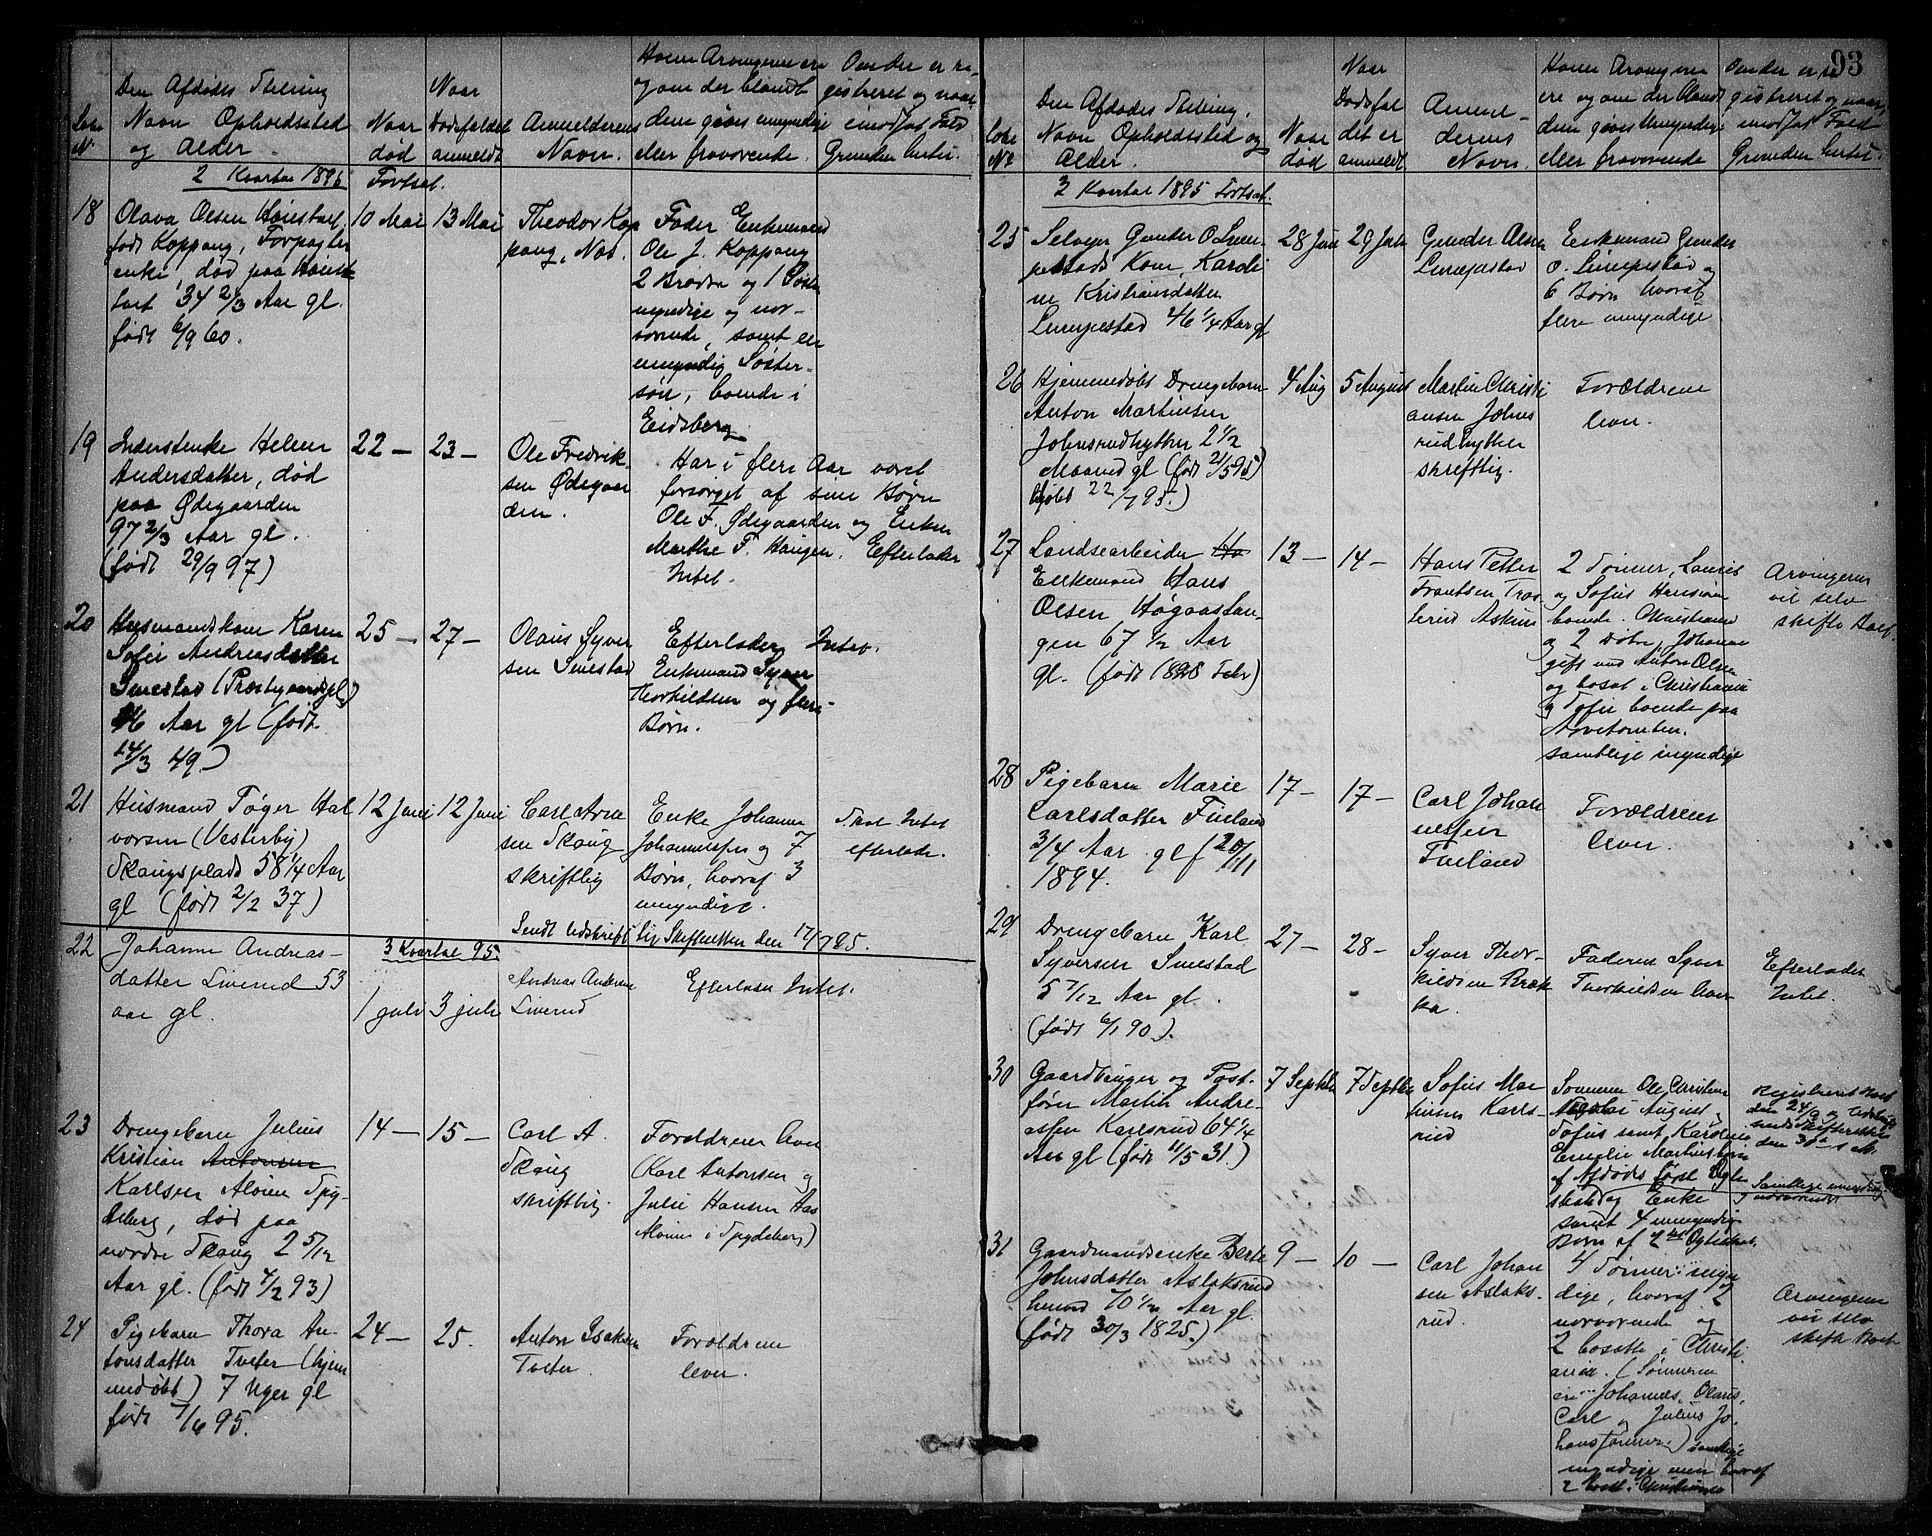 93
Løbe N.
Den Afdødes Stilling
Navn Opholdssted
og Alder.
Naar
død
Naar
Dødsfaldet
anmeldt
Anmelderens
Navn.
Hvem Arvingerne ere
og om der blandt
dem gives umyndige
eller fraværende.
Om der er re-
gistreret og naar
i modsat Fald
Grunden hertil.
2 Kvartal 1895 Fortsat.
18
Olava Olsen Høiestart
født Koppang, Forpagter
enke, død paa Høiest
tart 34 2/3 Aar gl.
født 6/9 60.
10 Mai
13 Mai
Theodor Kop
pang, Nos.
Fader Enkemand
Ole J. Koppang
2 Brødre og 1 Søster
myndige og nær-
værende, samt en
umyndig Søster-
søn, boende i
Eidsberg
19
Inderstenke Helene
Andersdatter, død
paa Ødegaarden
97 2/3 Aar gl.
(født 29/9 97)
22 —
23 —
Ole Fredrik-
sen Ødegaar
den.
Har i flere Aar været
forsørget af sine Børn
Ole F. Ødegaarden og Enken
Marthe F. Haugen. Efterlader
Intet.
20
Husmandskone Karen
Sofie Andreasdatter
Smestad (Præstegaardspl)
46 Aar gl (født
14/3 49.)
25 —
27 —
Olaus Syver
sen Smestad
Efterlader Intet.
Enkemand Syver
Thorkildsen og flere
Børn.
21
Husmand Tøger Hal
vorsen (Vesterby)
Skaugsplads 58 1/4 Aar
gl (født 2/2 37)
12 Juni
12 Juni
Carl Arne
sen Skaug
skriftlig
Enke Johanne
Johannesen og 7
Børn, hvoraf 3
umyndige.
Skal Intet
efterlade.
Sendt Udskrift til Skifteretten den 17/7 95.
3 Kvartal 95.
22
Johanne Andreas-
datter Liverud 53
aar gl.
1 juli
3 juli
Andreas Andersen
Liverud
Efterlader Intet.
23
Drengebarn Julius
Kristian Antonsen
Karlsen Moine Spy-
deberg, død paa
nordre Skaug 2 5/12
Aar gl. (født 7/2 93)
14 —
15 —
Carl A.
Skaug
skriftlig.
Forældrene lever
(Karl Antonsen og
Julie Hansen Aas
Moine i Spydeberg)
24
Pigebarn Thora An-
tonsdatter Tveter (hjem
medøbt) 7 Uger gl
født 7/6 95.
24 —
25.
Anton Isaksen
Tveter
Forældrene
lever.
Løbe
No
Den Afdødes Stilling,
Navn Opholdssted og
Alder.
Naar
død
Naar
Dødsfal
det er
anmeldt.
Anmel-
derens
Navn.
Hvem Arvingerne
ere og om der blandt
dem gives Umyndige
eller fraværende
Om der er re
gistreret og naar,
i modsat Fald
Grunden hertil.
3 Kvartal 1895 Fortsat.
25
Selveier Gunder O. Lum-
pestads Kone, Karoli
ne Kristiansdatter
Lumpestad 46 1/4 Aar gl
28 Juni
29 Juli
Gunder Olsen
Lumpestad
Enkemand Gunder
O. Lumpestad og
6 Børn hvoraf
flere umyndige
26
Hjemmedøbt Drengebarn
Anton Martinsen
Johnsrudhytten 2 1/2
Maaned gl (født 21/5 95)
døbt 22/7 95.)
4 Aug
5 August
Martin Christi
ansen Johns
rudhytten
skriftlig.
Forældrene
lever.
27
Landsearbeider Ha
Enkemand Hans
Olsen Høgaastan-
gen 67 1/2 Aar
gl. (født 1828 Febr)
13 —
14 —
Hans Petter
Frantsen Tras-
terud Askim
2 Sønner, Lauris
og Sofus Hansen
boende Christiania
og 2 Døtre, Johanne
gift med Anton Olsen
og bosat i Christiania
og Sofie boende paa
Arvetomten.
samtlige myndige
Arvingerne
vil selv
skifte Boet.
28
Pigebarn Marie
Carlsdatter Finland
3/4 Aar gl f 20/11
1894.
17 —
17 —
Carl Johan
nessen
Finland
Forældrene
lever.
29
Drengebarn Karl
Syversen Smestad
5 7/12 Aar gl.
(født 6/1 90).
27 —
28 —
Syver Thor-
kildsen Bræk
ka.
Faderen Syver
Thorkildsen lever
Efterlader
Intet.
30
Gaardbruger og Post-
fører Martin Andre-
assen Karlsrud 64 1/4
Aar gl (født 11/5 31.)
7 Septbr
7 Septbr
Sofus Mar
tinsen Karls-
rud
Sønnerne Ole Christian
Nicolai August
Sofus samt Karoline
Emelie Martinsen
af Afdødes først Ægte
skab og Enke
samt 4 umyndige
Børn af 2det Ægteskab.
Registreret Boet
den 24/9 og Udskrift
sendt Skifteretten
den 30te s.M.
Samtlige myndige
nærværende
31
Gaardmandsenke Berte
Johnsdatter Aslaksrud
70 1/2 Aar gl.
(født 30/3 1825.)
9 —
10 —
Carl Johan
sen Aslaks-
rud.
4 Sønner myn
dige, hvoraf 2
nærværende og
2 bosatte i Christi
ania. (Sønnerne
er Johannes, Olaus,
Carl og Julius Jo-
hans Sønner) samtlige
myndige men hvoraf
2 bosat i Christiania
Arvingerne
vil selv
skifte Boet